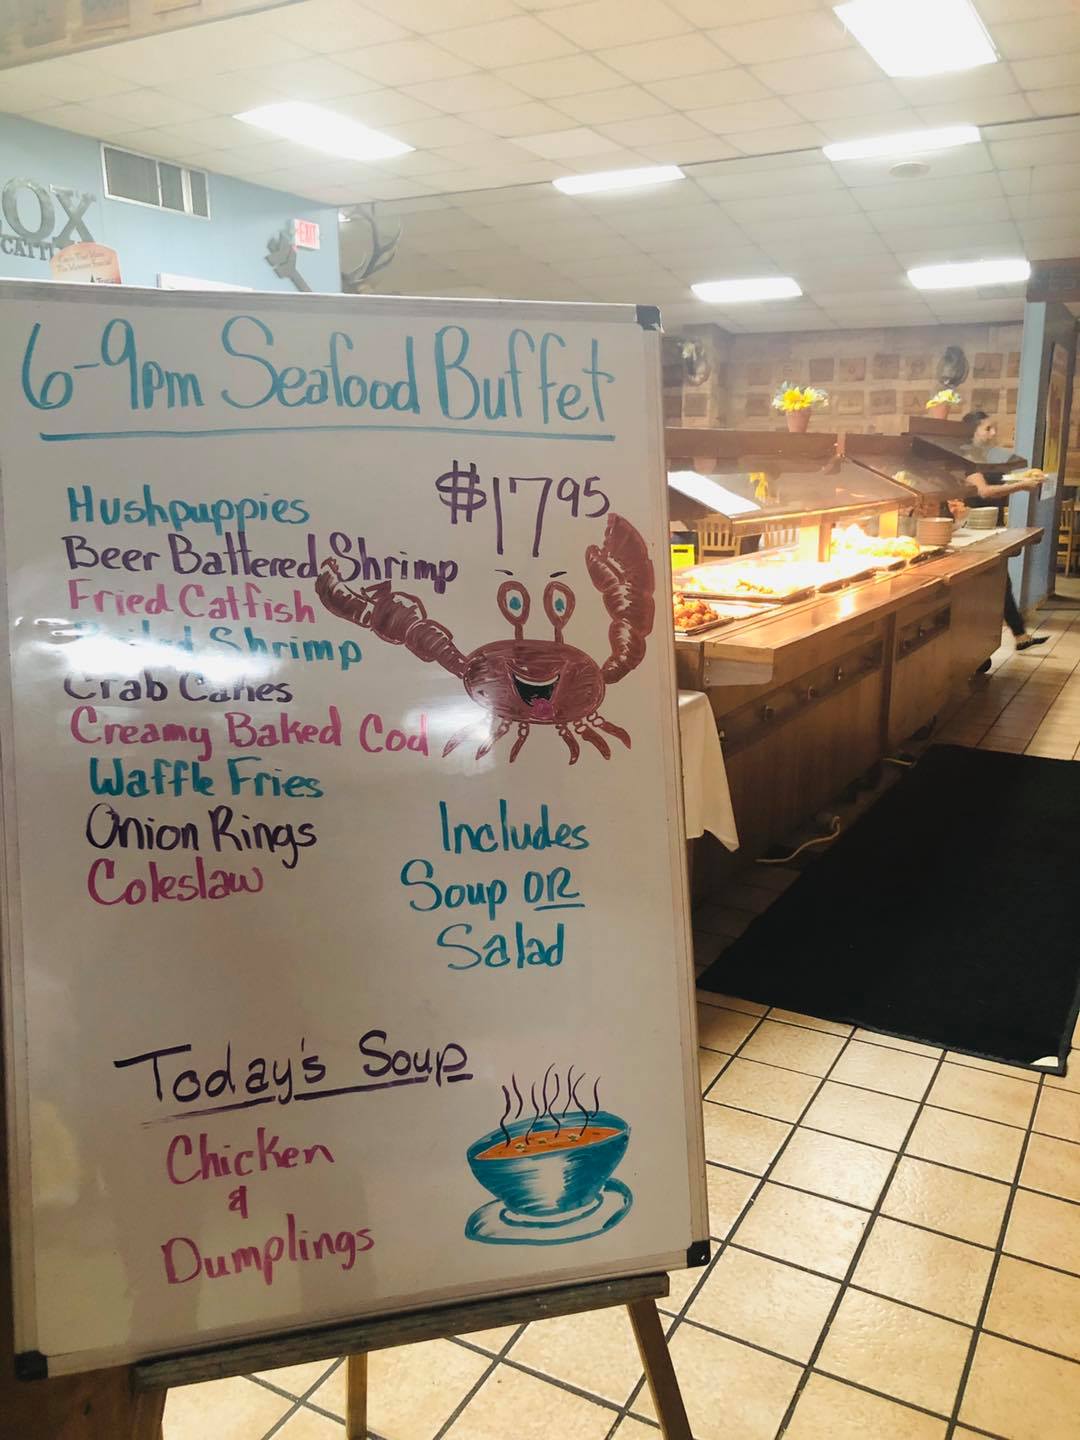 OX
CATT
EXIT
6-9pm Seafood Buffet
$17.95
Hushpuppies
Beer Battered Shrimp
Fried Catfish
Boiled Shrimp
Crab Cakes
Creamy Baked Cod
Waffle Fries
Onion Rings
Coleslaw
Includes
Soup OR
Salad
Today's Soup
Chicken
&
Dumplings